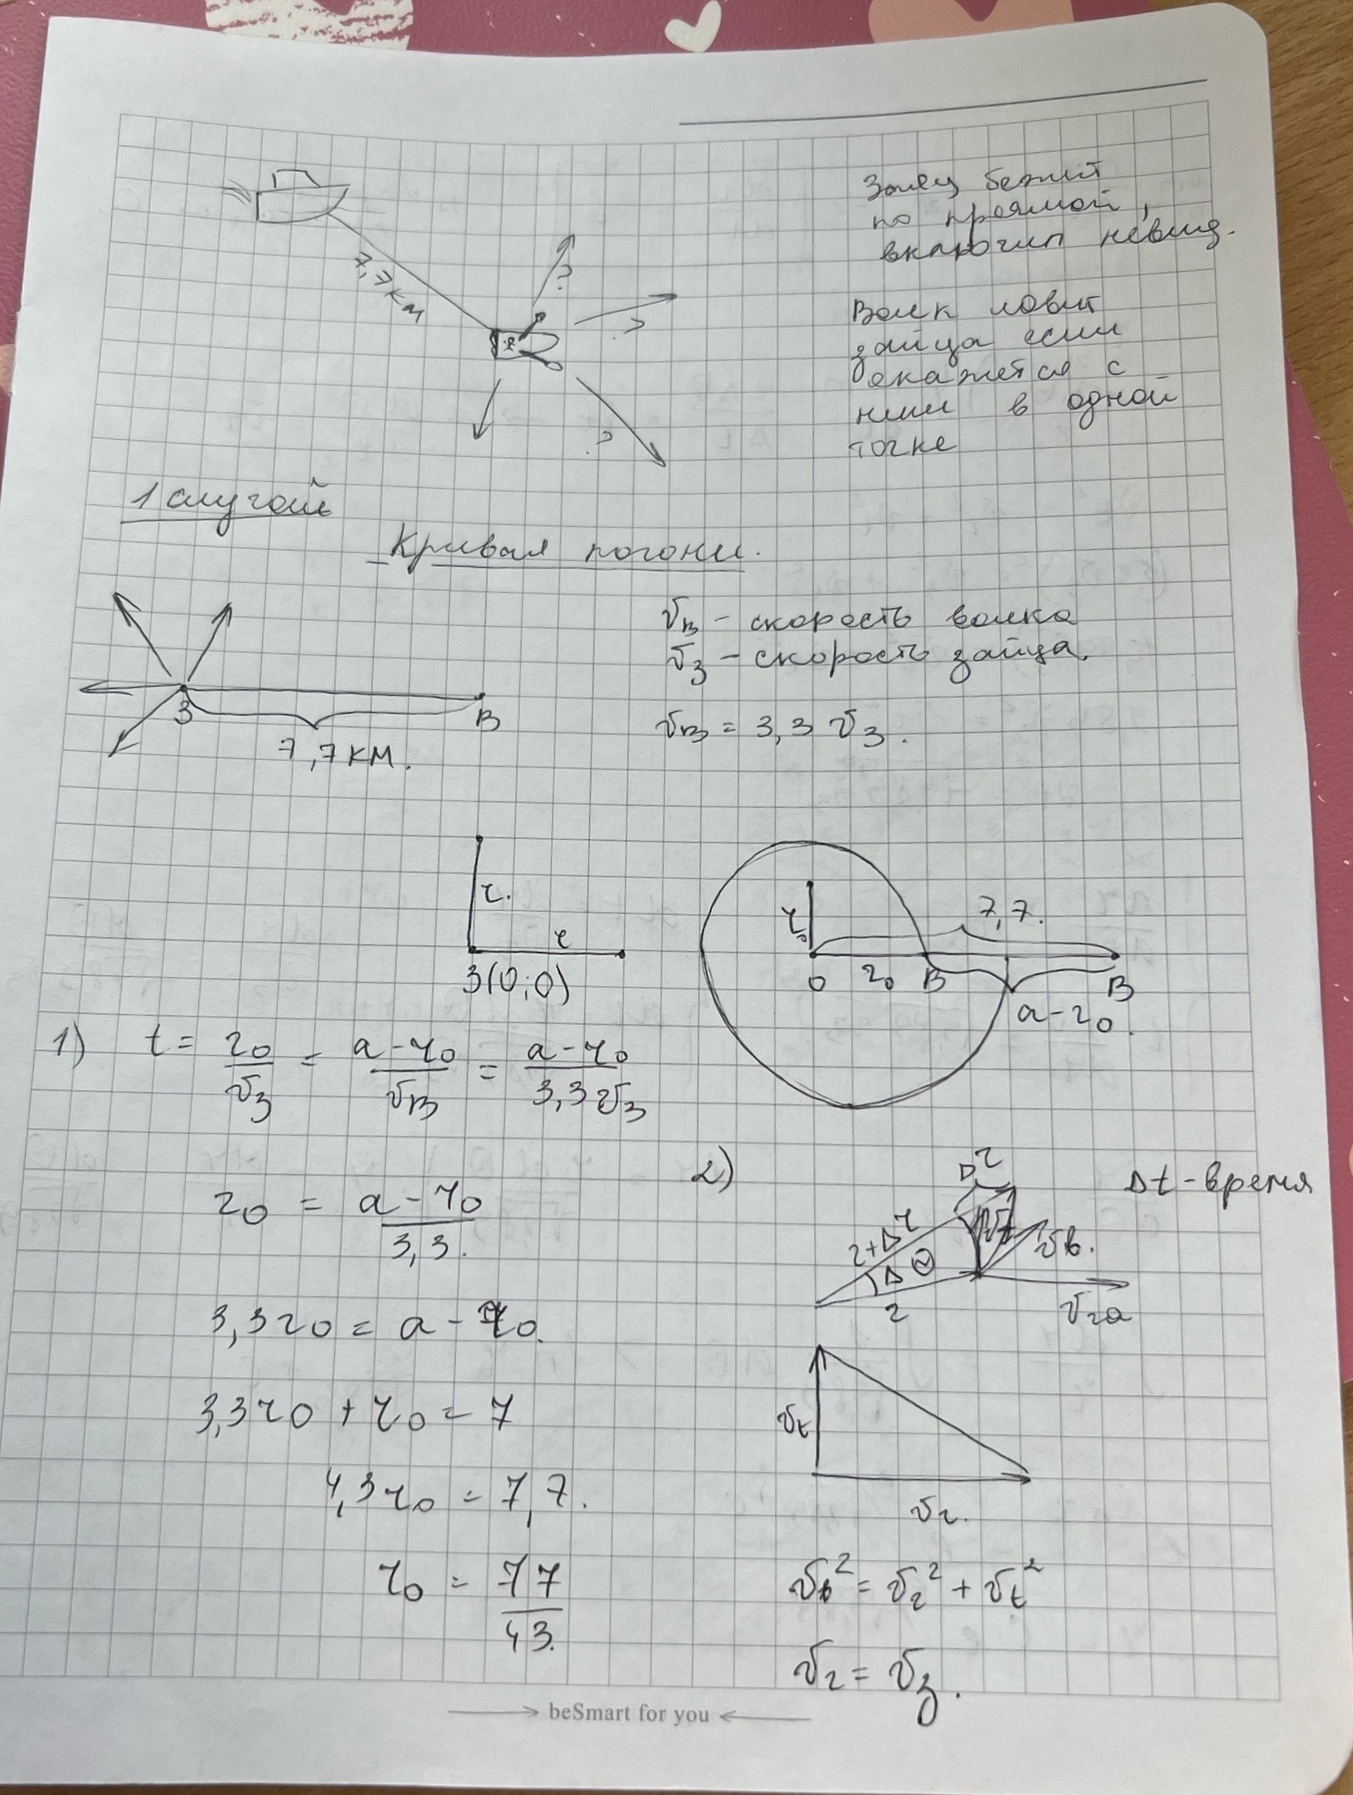 Заяц бежит
по прямой,
включил невид.
7,7 км
?
?
?
Волк ловит
зайца если
окажется с
ним в одной
точке
1 случай
Кривая погони.
З
В
7,7 км.
vв - скорость волка
vз - скорость зайца.
vв = 3,3 vз.
r.
r
З(0;0)
r₀
7,7.
0
r₀
В
В
a-r₀.
1) t = r₀/vз = (a-r₀)/vв = (a-r₀)/3,3vз
r₀ = (a-r₀)/3,3.
3,3r₀ = a-r₀.
3,3r₀ + r₀ = 7
4,3r₀ = 7,7.
r₀ = 77/43.
2)
Δr
Δt - время
r+Δr
ΔΘ
vt
vв.
r
vt
vr.
vв² = vr² + vt²
vr = vз.
beSmart for you